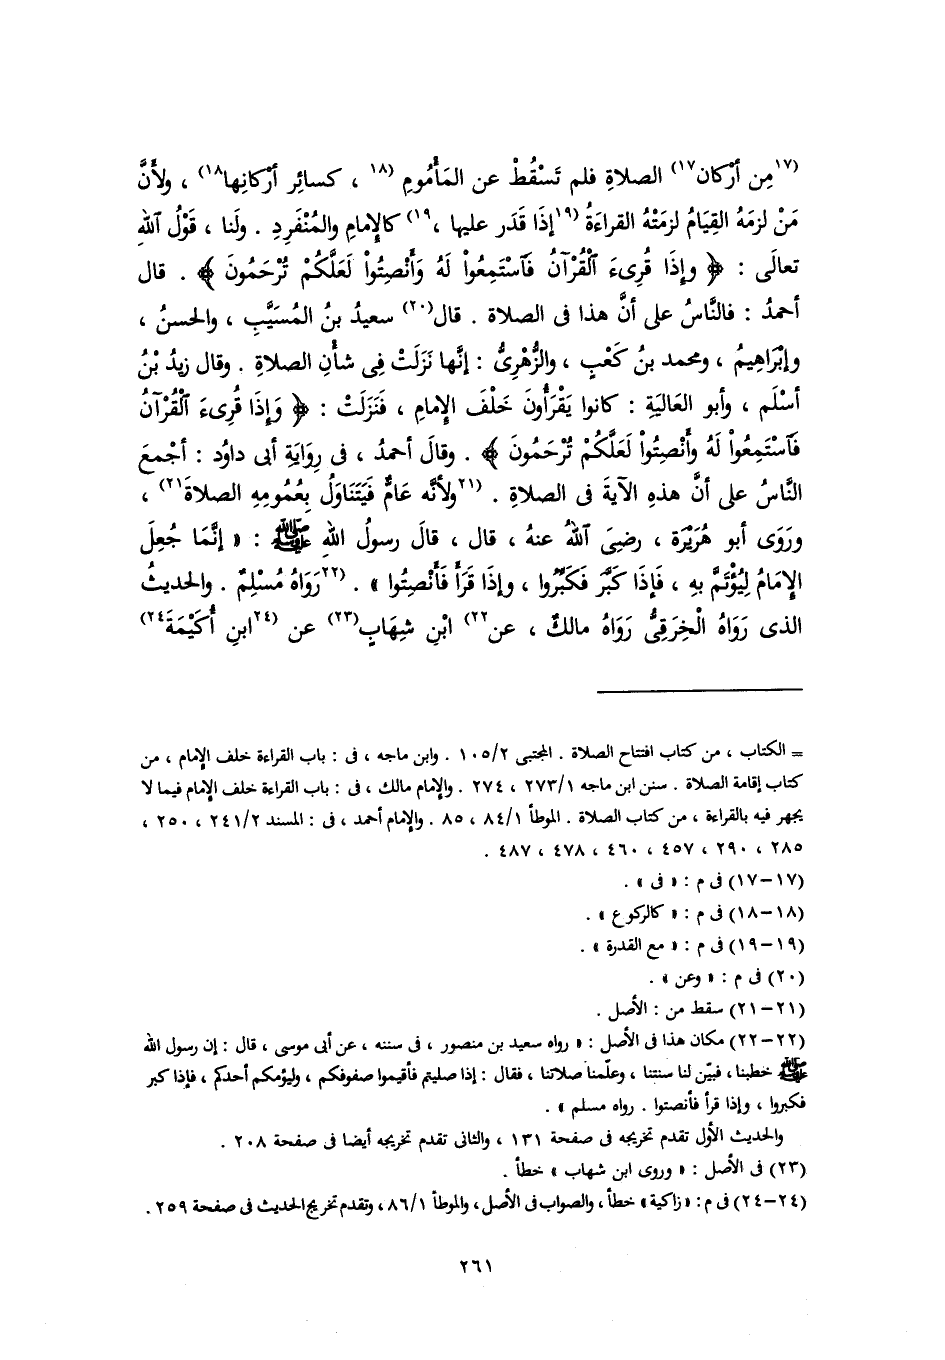 (١٧مِن أَرْكان١٧) الصلاةِ فلم تَسْقُطْ عن المَأْمُومِ (١٨ ، كسائِر أرْكانِها١٨) ، ولأَنَّ
مَنْ لزمَهُ القِيَامُ لزمَتْهُ القراءَةُ (١٩إذَا قَدَر عليها ،١٩) كالإِمامِ والمُنْفَرِدِ . ولَنا ، قَوْلُ اللهِ
تعالَى : ﴿ وإِذَا قُرِىءَ ٱلْقُرْآنُ فَٱسْتَمِعُواْ لَهُ وَأَنْصِتُواْ لَعَلَّكُمْ تُرْحَمُونَ ﴾ . قال
أحمدُ : فالنَّاسُ على أنَّ هذا فى الصلاة . قال(٢٠) سعيدُ بنُ المُسَيَّبِ ، والحسنُ ،
وإبْرَاهِيمُ ، ومحمد بنُ كَعْبٍ ، والزُّهْرِىُّ : إنَّها نَزَلَتْ فِى شأْنِ الصلاةِ . وقال زيدُ بْنُ
أسْلَم ، وأبو العَالِيَةِ : كانوا يَقْرَأُونَ خَلْفَ الإِمامِ ، فَنَزَلَتْ : ﴿ وَإِذَا قُرِىءَ ٱلْقُرْآنُ
فَٱسْتَمِعُواْ لَهُ وَأَنْصِتُواْ لَعَلَّكُمْ تُرْحَمُونَ ﴾ . وقالَ أحمدُ ، فى رِوَايَةِ أبى داوُد : أجْمعَ
النَّاسُ على أنَّ هذهِ الآيةَ فى الصلاةِ . (٢١ولأنَّه عَامٌّ فَيَتَنَاوَلُ بِعُمُومِهِ الصلاةَ٢١) ،
ورَوَى أبو هُرَيْرَة ، رضِىَ ٱللهُ عنهُ ، قال ، قالَ رسولُ اللهِ ﷺ : « إنَّمَا جُعِلَ
الإِمَامُ لِيُؤْتَمَّ بهِ ، فَإِذَا كَبَّرَ فَكَبِّرُوا ، وإذَا قَرَأَ فَأَنْصِتُوا » . (٢٢رَوَاهُ مُسْلِمٌ . والحديثُ
الذى رَوَاهُ الْخِرَقِىُّ رَوَاهُ مالكٌ ، عن٢٢) ابْنِ شِهَابٍ(٢٣) عن (٢٤ابنِ أُكَيْمَةَ٢٤)
= الكتاب ، من كتاب افتتاح الصلاة . المجتبى ١٠٥/٢ . وابن ماجه ، فى : باب القراءة خلف الإمام ، من
كتاب إقامة الصلاة . سنن ابن ماجه ٢٧٣/١ ، ٢٧٤ . والإمام مالك ، فى : باب القراءة خلف الإمام فيما لا
يجهر فيه بالقراءة ، من كتاب الصلاة . الموطأ ٨٤/١ ، ٨٥ . والإمام أحمد ، فى : المسند ٢٤١/٢ ، ٢٥٠ ،
٢٨٥ ، ٢٩٠ ، ٤٥٧ ، ٤٦٠ ، ٤٧٨ ، ٤٨٧ .
(١٧-١٧) فى م : « فى » .
(١٨-١٨) فى م : « كالركوع » .
(١٩-١٩) فى م : « مع القدرة » .
(٢٠) فى م : « وعن » .
(٢١-٢١) سقط من : الأصل .
(٢٢-٢٢) مكان هذا فى الأصل : « رواه سعيد بن منصور ، فى سننه ، عن أبى موسى ، قال : إن رسول الله
ﷺ خطبنا ، فبيّن لنا سنتنا ، وعلّمنا صلاتنا ، فقال : إذا صليتم فأقيموا صفوفكم ، وليؤمكم أحدكم ، فإذا كبر
فكبروا ، وإذا قرأ فأنصتوا . رواه مسلم » .
والحديث الأول تقدم تخريجه فى صفحة ١٣١ ، والثانى تقدم تخريجه أيضا فى صفحة ٢٠٨ .
(٢٣) فى الأصل : « وروى ابن شهاب » خطأ .
(٢٤-٢٤) فى م : « زاكية » خطأ ، والصواب فى الأصل ، والموطأ ٨٦/١ ، وتقدم تخريج الحديث فى صفحة ٢٥٩ .
٢٦١